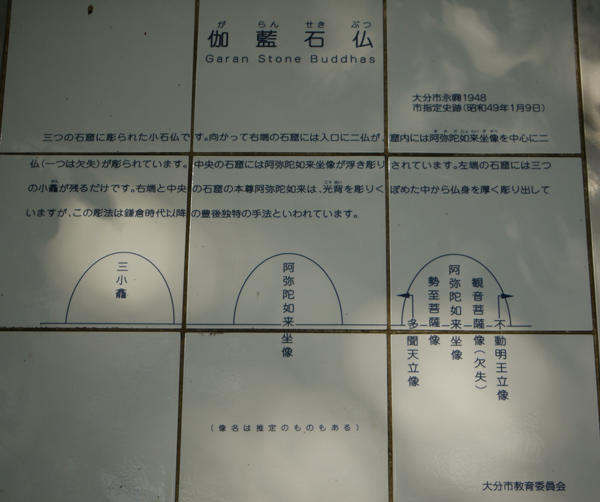 が らん せき ぶつ
伽藍石仏
Garan Stone Buddhas
大分市永興1948
市指定史跡(昭和49年1月9日)
三つの石窟に彫られた小石仏です。向かって右端の石窟には入口に二仏が、窟内には阿弥陀如来坐像を中心に二
仏(一つは欠失)が彫られています。中央の石窟には阿弥陀如来坐像が浮き彫りされています。左端の石窟には三つ
の小龕が残るだけです。右端と中央の石窟の本尊阿弥陀如来は、光背を彫りくぼめた中から仏身を厚く彫り出して
いますが、この彫法は鎌倉時代以降の豊後独特の手法といわれています。
三小龕
阿弥陀如来坐像
不動明王立像
観音菩薩像(欠失)
阿弥陀如来坐像
勢至菩薩像
多聞天立像
(像名は推定のものもある)
大分市教育委員会